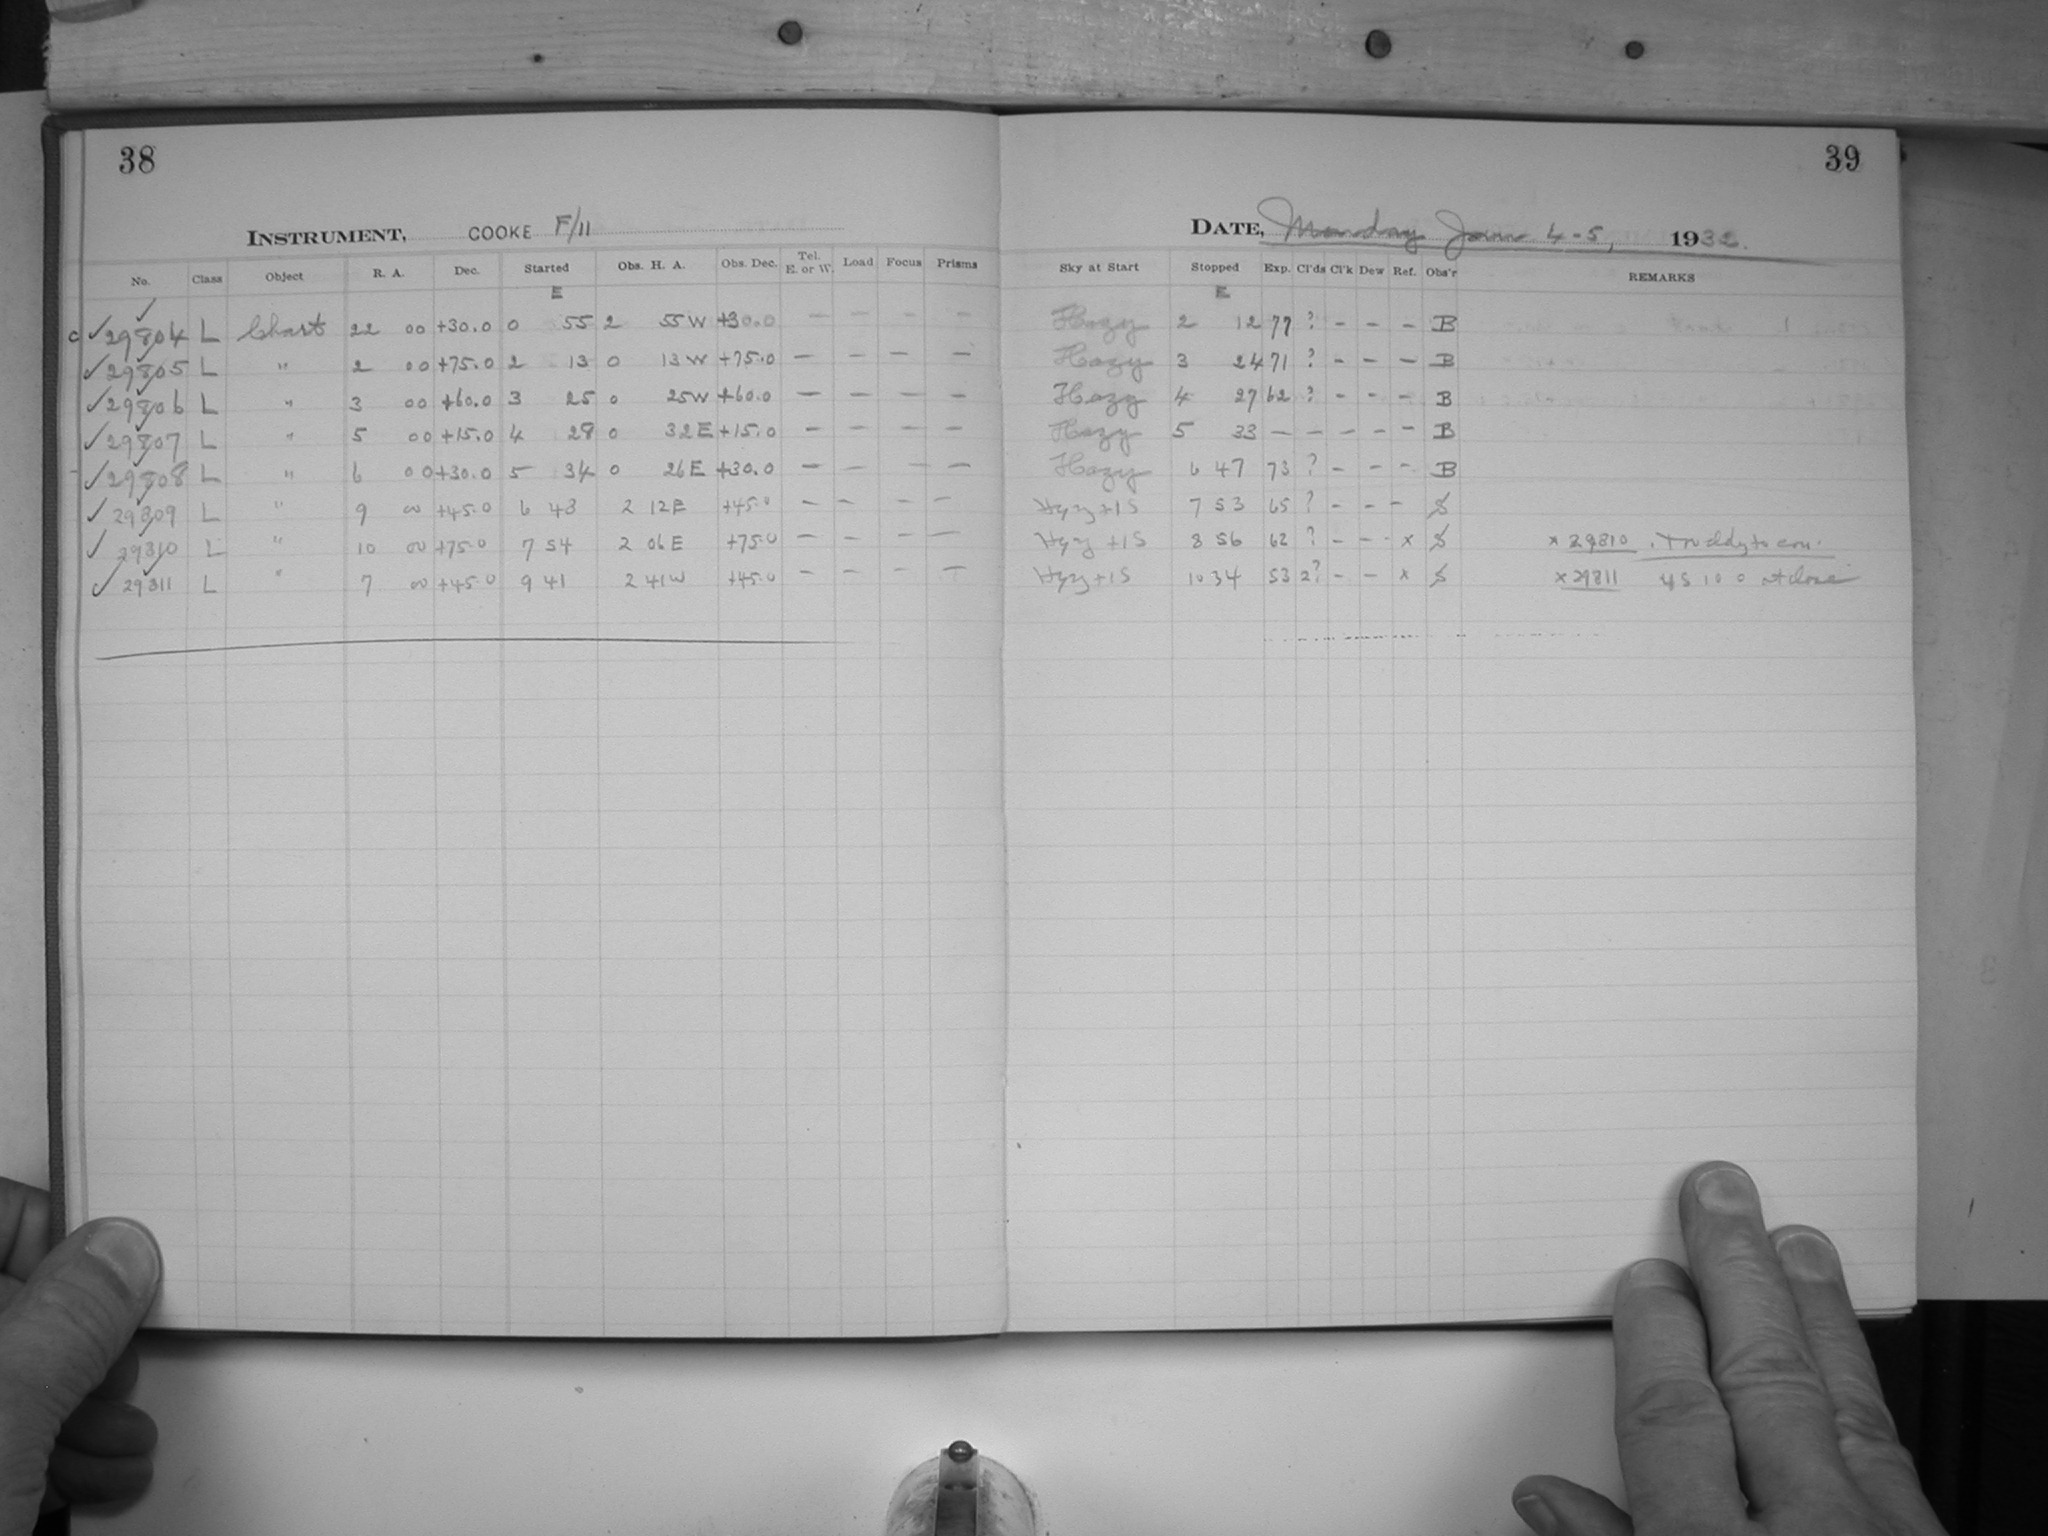 38
INSTRUMENT, COOKE F/11
No. Class Object R. A. Dec. Started Obs. H. A. Obs. Dec. Tel. E. or W. Load Focus Prisms
E
c ✓ 29804 L Chart 22 00 +30.0 0 55 2 55 W +30.0 — — — —
✓ 29805 L " 2 00 +75.0 2 13 0 13 W +75.0 — — — —
✓ 29806 L " 3 00 +60.0 3 25 0 25 W +60.0 — — — —
✓ 29807 L " 5 00 +15.0 4 28 0 32 E +15.0 — — — —
✓ 29808 L " 6 00 +30.0 5 34 0 26 E +30.0 — — — —
✓ 29809 L " 9 00 +45.0 6 48 2 12 E +45.0 — — — —
✓ 29810 L " 10 00 +75.0 7 54 2 06 E +75.0 — — — —
✓ 29811 L " 7 00 +45.0 9 41 2 41 W +45.0 — — — —
39
DATE, Monday Jan 4-5, 1932.
Sky at Start Stopped Exp. Cl'ds Cl'k Dew Ref. Obs'r REMARKS
E
Hazy 2 12 77 ? - - - B
Hazy 3 24 71 ? - - - B
Hazy 4 27 62 ? - - - B
Hazy 5 33 — — — — - B
Hazy 6 47 73 ? - - - B
Hyzy +1S 7 53 65 ? - - - S
Hyzy +1S 8 56 62 ? - - - x S x 29810
Hyzy +1S 10 34 53 2? - - x S x 29811 45 10 0 at close